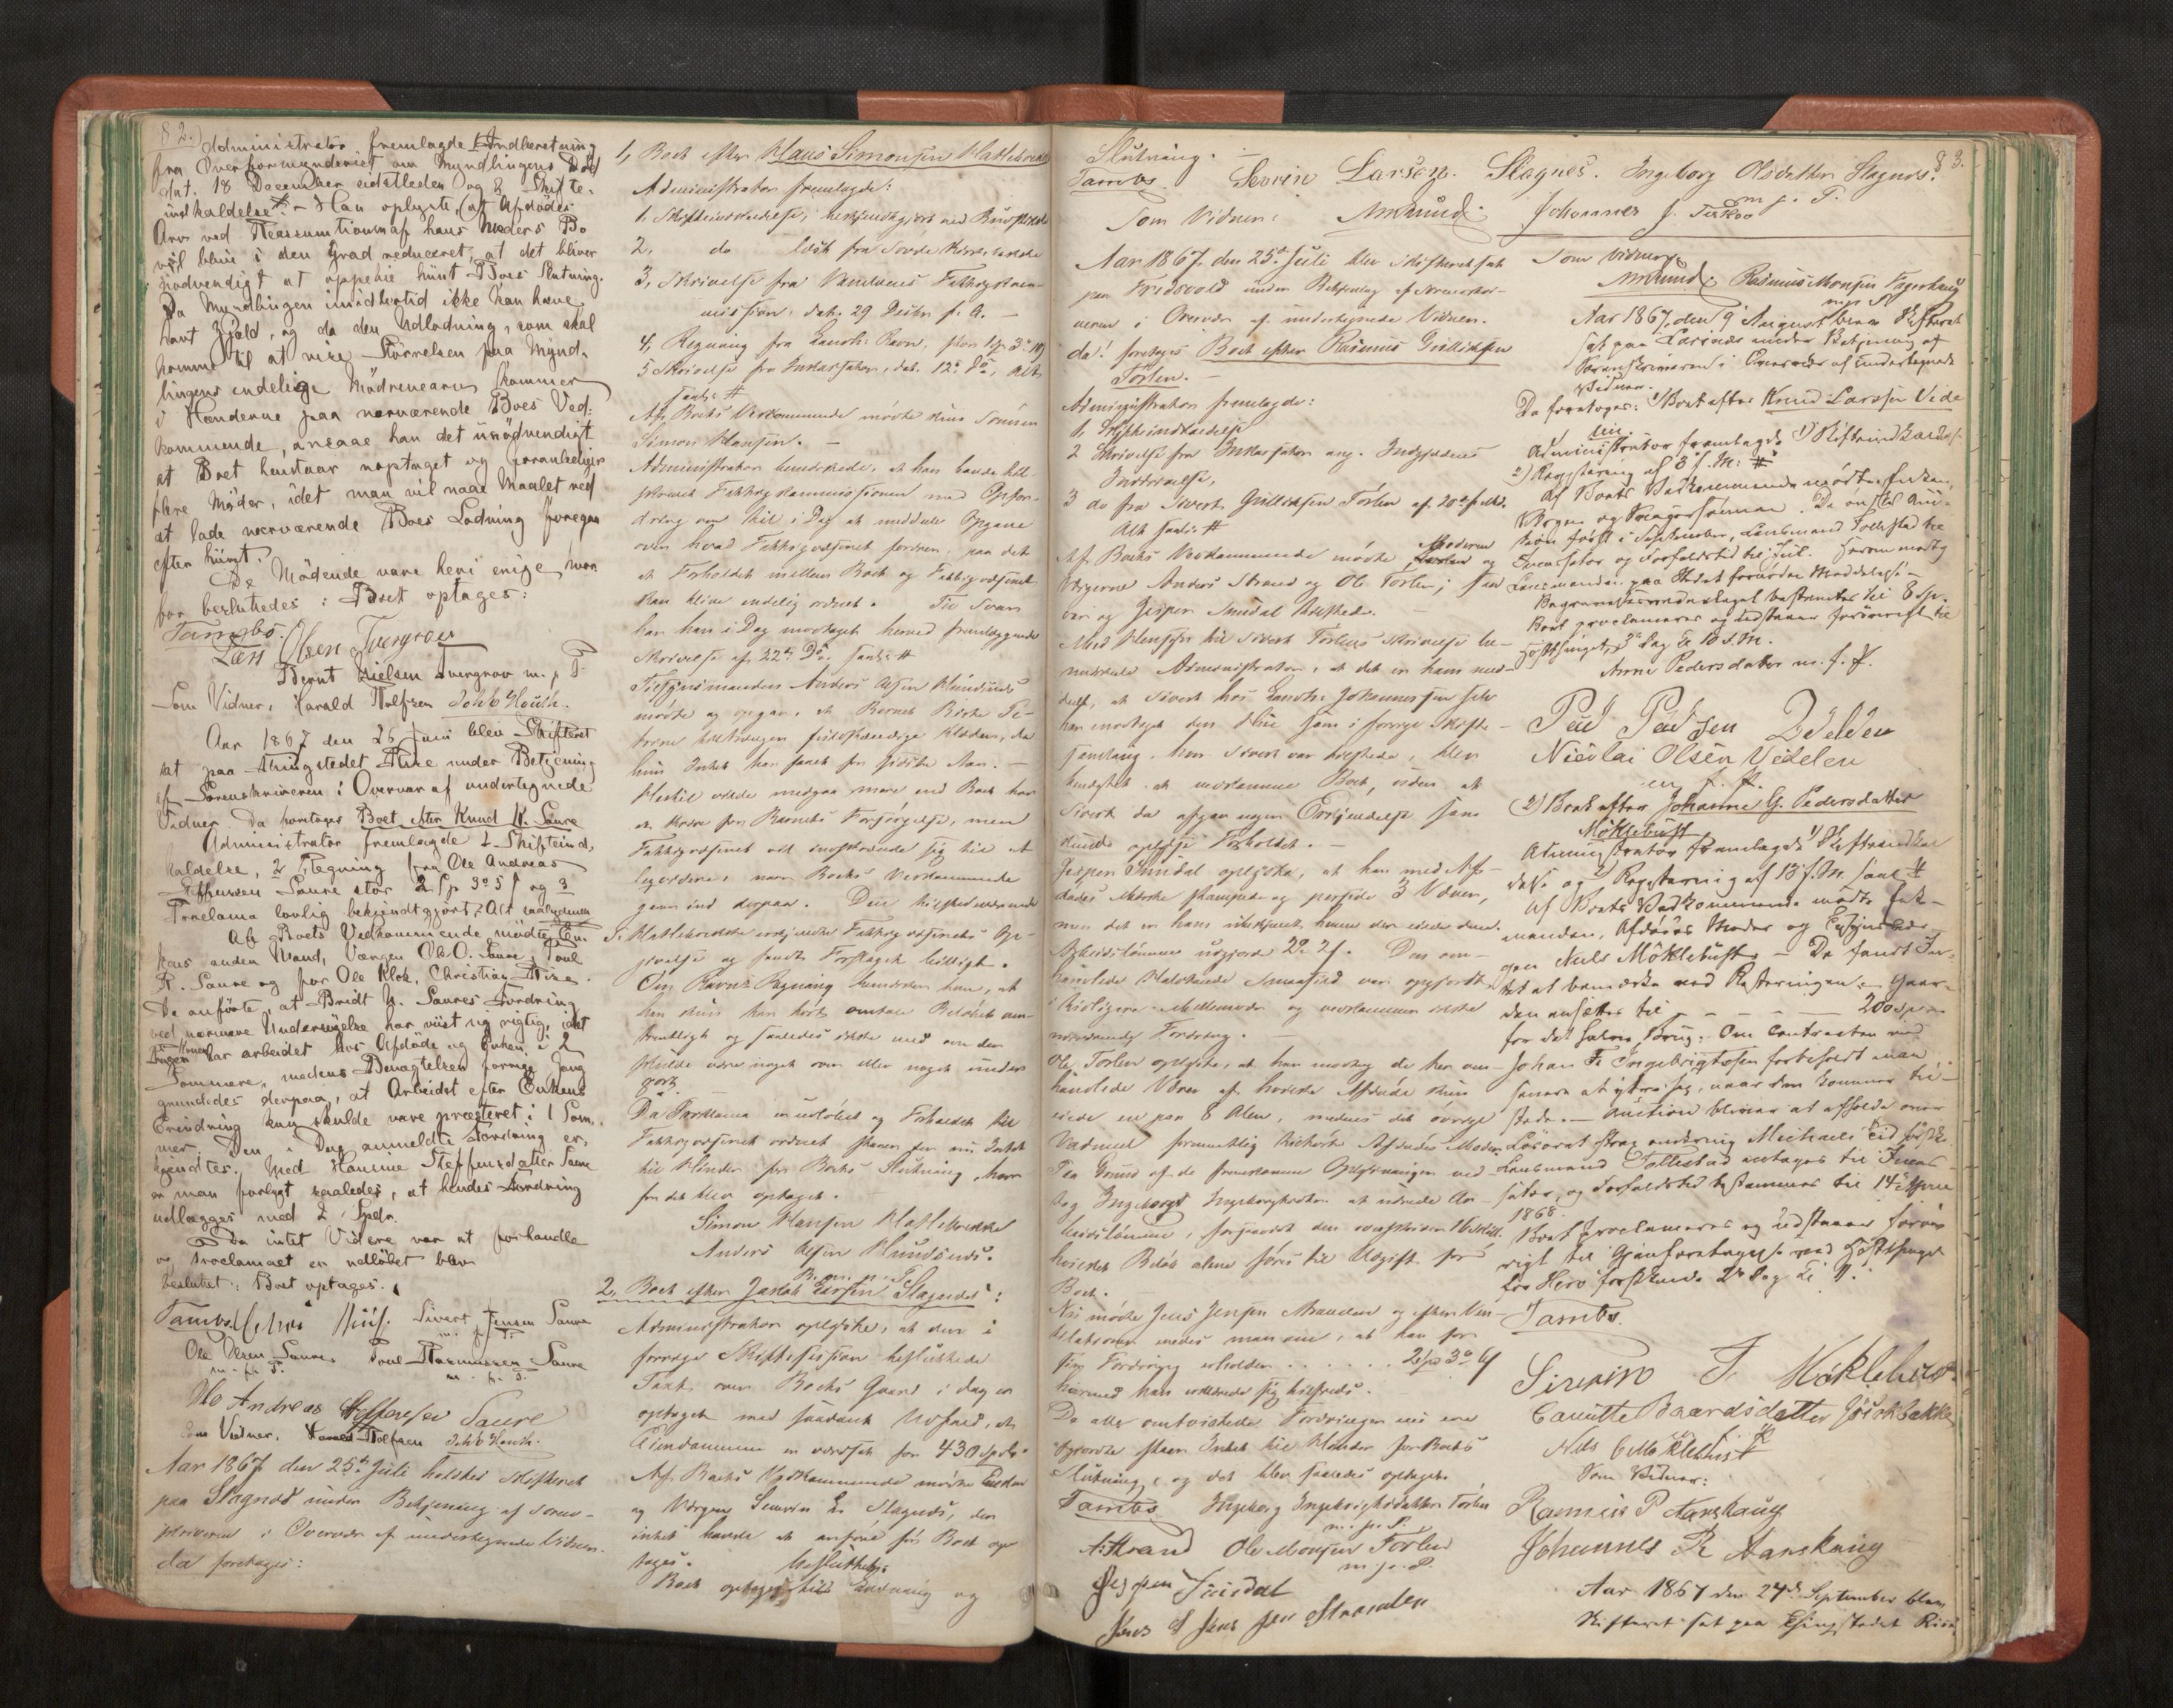 82.)
Administrator fremlagde 1 Indberetning
fra Overformynderiet om Myndlingens Død
dat. 18 December sidstleden og 2 Skifte-
indkaldelse. # - Han oplyste, at Afdødes
Arv ved Reassumtionen af hans Moders Bo
vil blive i den Grad reduceret, at det bliver
nødvendigt at oppebie hiint Boes Slutning.
Da Myndlingen imidlertid ikke kan have
havt Gjæld, og da den Udlodning, som skal
komme til at vise Størrelsen paa Mynd-
lingens endelige Mødrenearv kommer
i Hænderne paa nærværende Boes Ved-
kommende, ansaae han det unødvendigt
at Boet henstaar uoptaget og foranlediger
flere Møder, idet man vil naae Maalet ved
at lade nærværende Boes Lodning foregaa
efter hiint.
De Mødende vare heri enige, hvor
for besluttedes: Boet optages:
Tambs.
Lars Olsen Tvergrov
Bernt Nielsen Tvergrov m. p. F
Som Vidner, Harald Rolfsen Joh. B. Houth.
Aar 1867 den 26 Juni blev Skifteret
sat paa Thingstedet Aure under Betjening
af Sorenskriveren i Overvær af undertegnede
Vidner. Da foretoges Boet efter Knud K. Saure
Administrator fremlagde 1 Skifteind-
kaldelse, 2 Regning fra Ole Andreas
Steffensen Saure stor 2 Sp 3 o 5 s og 3
Proclama lovlig bekjendtgjort; Alt saalydende
Af Boets Vedkommende mødte En-
kens anden Mand, Værgen Ole O. Saure, Poul
R. Saure og for Ole Klok, Christian Aure
Da anførte, at Bridt K. Saures Fordring
ved nærmere Undersøgelse har viist sig rigtig, idet
har arbeidet hos Afdøde og Enken i 2
Sommere, medens Benægtelsen forrige Gang
grundedes derpaa, at Arbeidet efter Enkens
Erindring kun skulde være præsteret i 1 Som-
mer. Den i Dag anmeldte Fordring er-
kjendtes. Med Hansine Steffensdatter Saure
er man forligt saaledes, at hendes Fordring
udlægges med 2 Spdr.
Da intet Videre var at forhandle
og Proclamaet er udløbet blev
besluttet: Boet optages.
Tambs Sivert Jensen Saure
m. p. F.
Ole Olsen Saure, Poul Rasmussen Saure
m. p. F. m. p. F.
Ole Andreas Steffensen Saure
Som Vidner, Harald Rolfsen Joh. B. Houth.
Aar 1867 den 25de Juli holdtes Skifteret
paa Slagnæs under Betjening af Soren-
skriveren i Overvær af undertegnede Vidner.
Da foretoges:
1, Boet efter Klaus Simonsen Hatlebrække
Administrator fremlagde:
1. Skifteindkaldelse, bekjendtgjort ved
2, do læst fra Sovde Kirke
3, Skrivelse fra Vanelvens Fattigkom-
mission, dat. 29 Decbr. f. A. —
4, Regning fra Landh. Ravn, stor
5 Skrivelse fra Inkassator, dat. 12te Ds, Alt
saal: #
Af Boets Vedkommende mødte kun Sønnen
Simon Klausen. —
Administrator bemærkede, at han havde til
skrevet Fattigkommissionen med Opfor-
dring om til i Dag at meddele Opgave
over hvad Fattigvæsenet fordrer, paa det
at Forholdet mellem Boet og Fattigvæsenet
kan blive endelig ordnet. Til Svar
har han i Dag modtaget herved fremlæggende
Skrivelse af 22de Ds, saal: #
Tilsynsmanden Anders Olsen Klundsund
mødte og opgav, at Barnet
har faaet for sidste Aar. —
at kræve for Barnets Forsørgelse, men
Fattigvæsenet vil indskrænke sig til et
ligeoverfor, naar Boets Vedkommende
gaar ind derpaa. Den tilstedeværende
S. Hatlebrække erkjendte Fattigvæsenets Op-
givelse og fandt Forslaget billigt.
Om Ravns Regning bemærkede han, at
han kun har hørt omtale Beløbet om-
trentligt og saaledes ikke ved om der
skulde være noget over eller noget under
gort.
Da Proclama er udløbet og Forholdet til
Fattigvæsenet ordnet staar der nu Intet
til Hinder for Boets Slutning, hvor
for det blev optaget.
Simon Klausen Hatlebrække
Anders Olsen Klundsund.
2, Boet efter Jakob Slagnæs:
Administrator oplyste, at den i
forrige Skiftesession besluttede
Taxt over Boets Gaard i Dag er
optaget med saadant Udfald, at
Eiendommen er værdsat for 430 Spdlr.
Af Boets Vedkommende mødte Enken
og Værgen Severin L. Slagnæs, der
intet havde at anføre før Boet op-
tages. Besluttedes:
Boet optages til Lodning og
83.
Slutning. —
Tambs. Sevrin Larsen. Slagnes. Ingeborg Olsdatter Slagnes.
m. p. F.
Som Vidner: Amund. Johannes J.
Aar 1867 den 25de Juli blev Skifteret sat
paa Fredsvold under Betjening af Sorenskri-
veren i Overvær af undertegnede Vidner.
da! foretoges Boet efter Rasmus Gulliksen
Torlen. —
Administrator fremlagde:
1, Skifteindkaldelse
2 Skrivelse fra Inkassator ang. Indgjældens
Inddrivelse,
3 do fra Sivert Gulliksen Torlen af 20de f. Md.
Alt saal: #
Af Boets Vedkommende mødte Moderen og
Værgerne Anders Strand og Ole Torlen; saa
var og Jesper Sundal tilstede. —
Med Hensyn til Sivert Torlens Skrivelse be-
mærkede Administrator, at det er ham med-
delt, at Sivert hos Landh. Johannessen selv
har modtaget den Klæde som i forrige Skifte-
samling, hvor Sivert var tilstede, blev
besluttet at vedkomme Boet, uden at
Sivert da afgav nogen Erkjendelse som
kunde oplyse Forholdet. —
Jesper Sundal oplyste, at han med Af-
dødes Moder stampede og pressede 3 Vævner,
men det er ham ubekjendt hvem der eiede dem.
Arbeidslønnen udgjorde 2 o 2 s. Den om-
Fordring. —
Ole Torlen oplyste, at han modtog de her om-
handlede Varer af hvilke Afdøde kun
eiede en paa 8 Alen, medens det øvrige
Vadmel formentlig tilhørte Afdødes Moder.
Paa Grund af de fremkomne Oplysninger ved-
tog Ingeborg Ingebrigtsdatter at udrede Ar-
beidslønnen, forsaavidt den overstiger 16 Skill.
hvilket Beløb alene føres til Udgift for
Boet. —
Nu mødte Jens Jensen Mræalen og efter Ven-
tilationer enedes man om, at han for
sin Fordring erholder . . . . . . 2 sp 3 o 6 s
hvormed han erklærede sig tilfreds.
Da alle omtvistede Fordringer nu ere
afgjorte staar Intet til Hinder for Boets
Slutning, og det blev saaledes optaget.
Tambs Ingeborg Ingebrigtsdatter Torlen
m. p. F.
A. Strand Ole Monsen Torlen
m. p. F.
Jesper Sundal
Jens Jensen
Som Vidner,
Amund. Rasmus Monsen Fagerhaug
m. p. F.
Aar 1867 den 9de August blev Skifteret
sat paa Larsnæs under Betjening af
Sorenskriveren i Overvær af undertegnede
Vidner.
Da foretoges: 1) Boet efter Knud Larssen Vide-
len.
Administrator fremlagde 1) Skifteindkaldelse
2) Registering af 3 f. M: #
Af Boets Vedkommende mødte Enken,
Værgen og Svogersønnen. Da ønsket Auk-
tion først i September, Lensmand Tollestad til
Inkassator og Forfaldstid til Juli. Herom modtog
Lensmanden paa Stedet fornøden Meddelelse. —
Begravelsesvederlaget bestemtes til 8 Sp.
Boet proclameres og udstaaer forøvrigt til
Høstthinget, 3die Dag Kl 10 F. M.
Anne Pedersdatter m. f. P.
Peder
Nicolai Olsen Vedelen
m. f. P.
2) Boet efter Johanne G. Pedersdatter
Møklebust
Administrator fremlagde 1) Skifteindkal-
delse og 2 Registering af 13 f. M. saal #
Af Boets Vedkommende mødte Enke-
manden, Afdødes Moder og
Niels Møklebust. — Da fandt In-
tet at bemærke ved Registeringen. — Gaar-
den ansættes til — — — — 200 Spd
for det halve Brug. Om Contracten med
Johan F. Ingebrigtssen forbeholdt man
senere at ytre sig, naar den kommer til-
stede. — Auktion bliver at afholde over
Løsøret strax omkring Michaeli Tid førstk.
Lensmand Tollestad antages til Inkas-
sator, og Forfaldstid bestemmes til 14 April
1868.
Boet proclameres og udstaaer forøv-
rigt til Gjenforetagelse ved Høstthinget
for Herø førstkmde 2den Dag Kl 9. —
Tambs.
Siverin F. Møklebust.
Canutte Baardsdatter Bjørkbakke
Nils C Møklebust
Som Vidner:
Rasmus P Aarskaug
Johannes R Aarskaug
Aar 1867 den 24de September blev
Skifteret sat paa Thingstedet